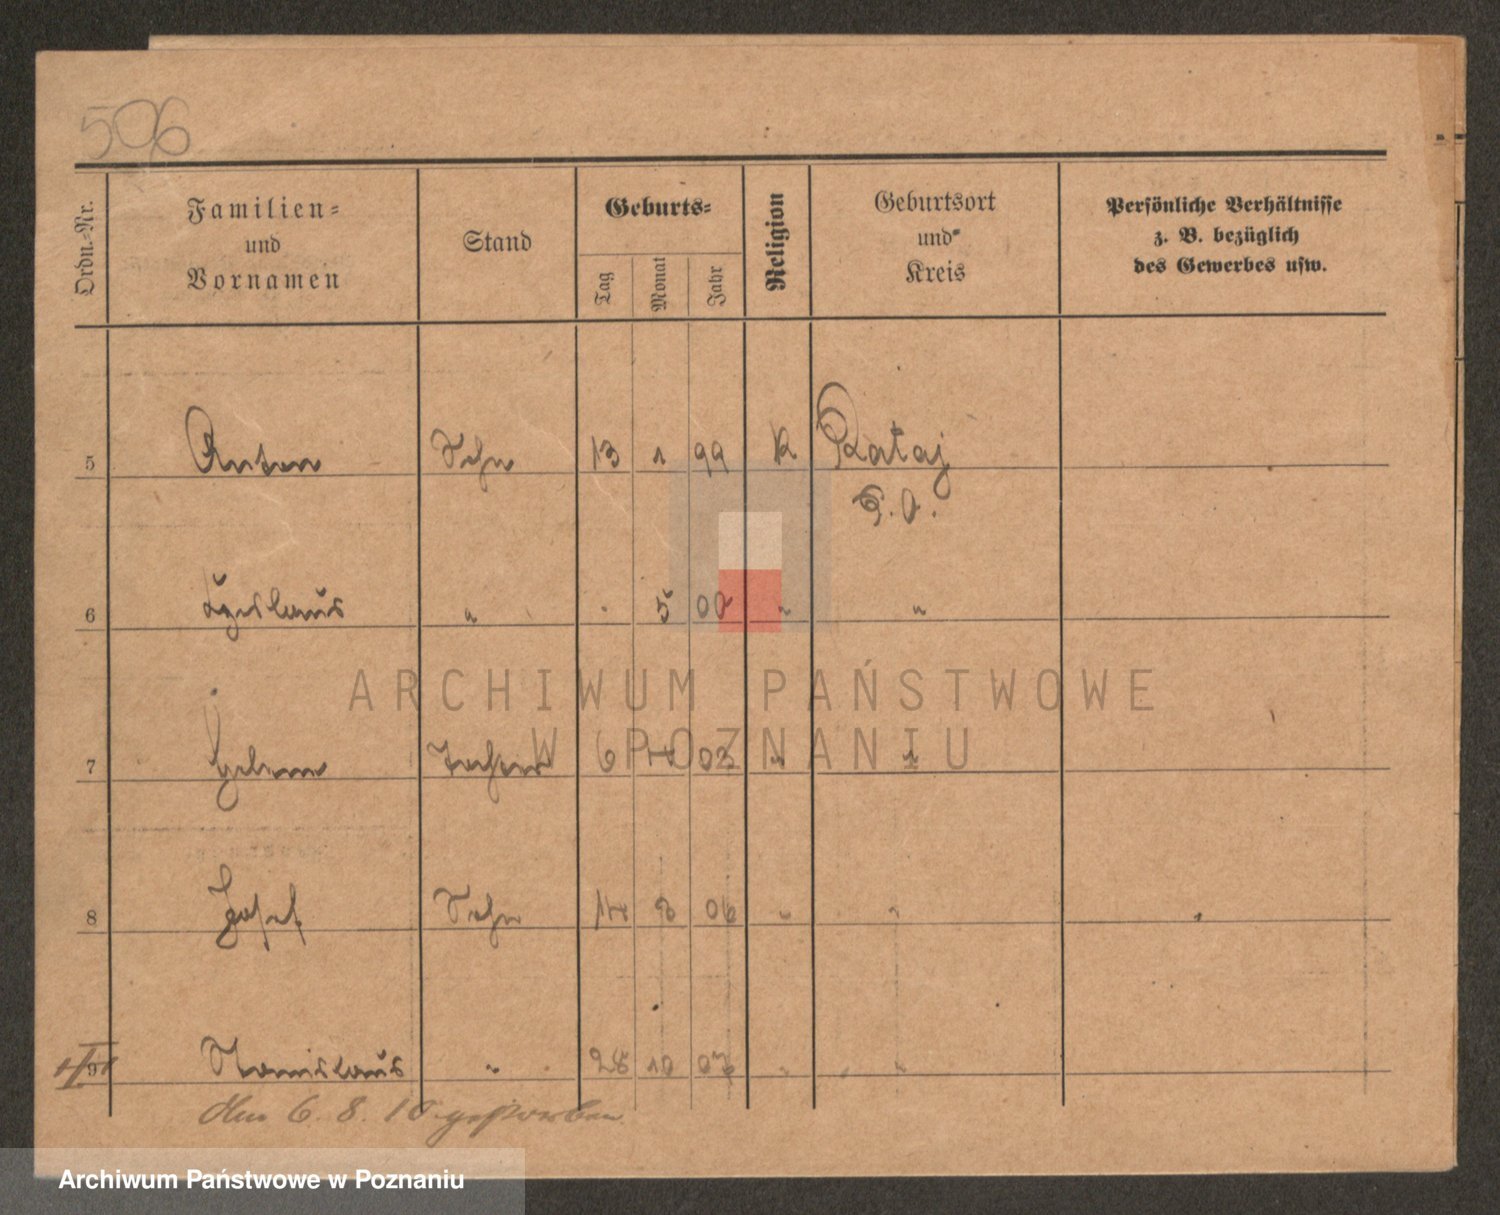 506
Ordn.-Nr.
Familien-
und
Vornamen
Stand
Geburts-
Tag
Monat
Jahr
Religion
Geburtsort
und
Kreis
Persönliche Verhältnisse
z. B. bezüglich
des Gewerbes usw.
5 Anton Sohn 13 1 99 K Rataj
6 " . 5 00 " "
ARCHIWUM PAŃSTWOWE
W POZNANIU
7 Tochter 6 03 " "
8 Josef Sohn 14 06 " "
9 Stanislaus " 28 10 07 " "
6. 8. 10 gestorben
Archiwum Państwowe w Poznaniu